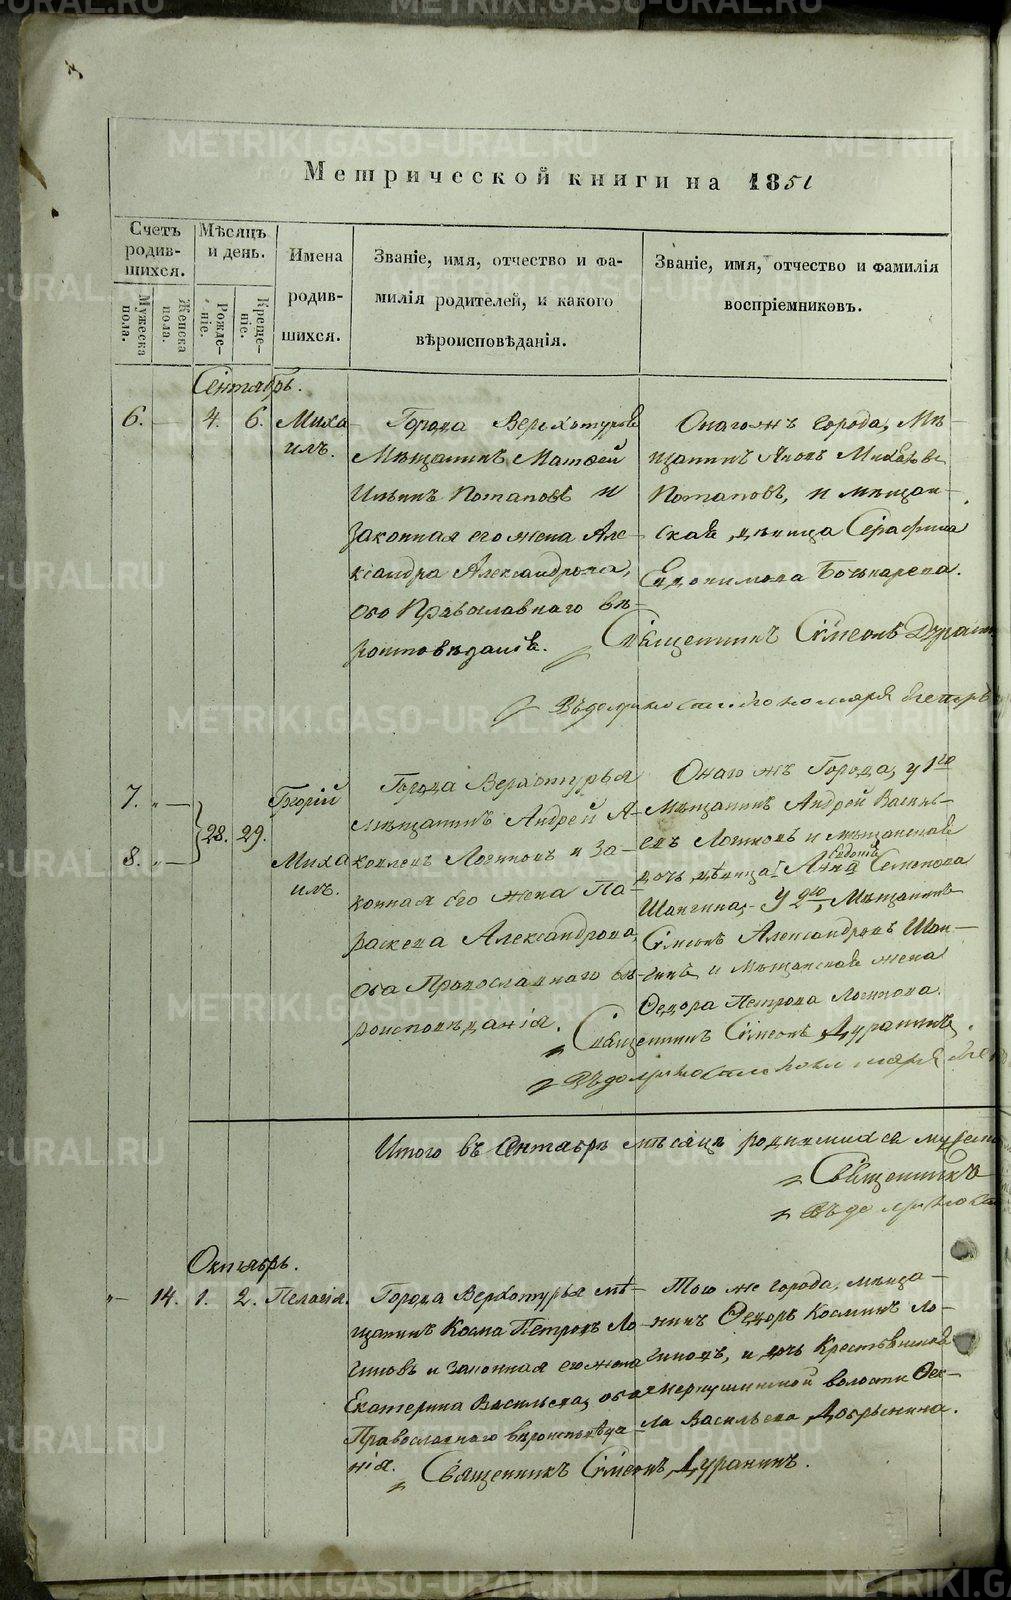 Метрической книги на 1851
Счетъ родившихся.
Мѣсяцъ и день.
Имена родившихся.
Званіе, имя, отчество и фамилія родителей, и какого вѣроисповѣданія.
Званіе, имя, отчество и фамилія воспріемниковъ.
Мужеска пола.
Женска пола.
Рожденіе.
Крещеніе.
Сентябрь.
6. — 4. 6. Миха-
илъ.
Города Верхотурья
Мѣщанинъ Матѳей
Ильинъ Потаповъ и
законная его жена Але-
ксандра Александрова,
оба Православнаго вѣ-
роисповѣданія.
Онагожъ города, Мѣ-
щанинъ Яковъ
Потаповъ, и мѣщан-
ская дѣвица Серафима
Евдокимова Бочкарева.
Священникъ Сѵмеонъ
7. „ —
8. „ —
28. 29.
Георгій
Миха
илъ.
Города Верхотурья
мѣщанинъ Андрей Я-
ковлевъ Логиновъ и за-
конная его жена Па-
раскева Александрова,
оба Православнаго вѣ-
роисповѣданія.
Онаго жъ Города, у 1го
Мѣщанинъ Андрей Василь-
евъ Логиновъ и мѣщанская
дочь дѣвица Анна Семенова
Шангина, У 2го, Мѣщанинъ
Сѵмеонъ Александровъ Шан-
гинъ и Мѣщанская жена
Ѳедора Петрова Логинова.
Священникъ Сѵмеонъ Дуранинъ.
Итого въ Сентябрѣ мѣсяцѣ родившихся
Священникъ
Октябрь.
„ — 14. 1. 2. Пелагія.
Города Верхотурья мѣ-
щанинъ Косма Петровъ Ло-
гиновъ и законная его жена
Екатерина Васильева, оба
Православнаго вѣроисповѣда-
нія.
Того же города, мѣща-
нинъ Ѳедоръ Косминъ Ло-
гиновъ, и дочь Крестьянина
Меркушинской волости Ѳек-
ла Васильева Добрынина.
Священникъ Сѵмеонъ Дуранинъ.
METRIKI.GASO-URAL.RU